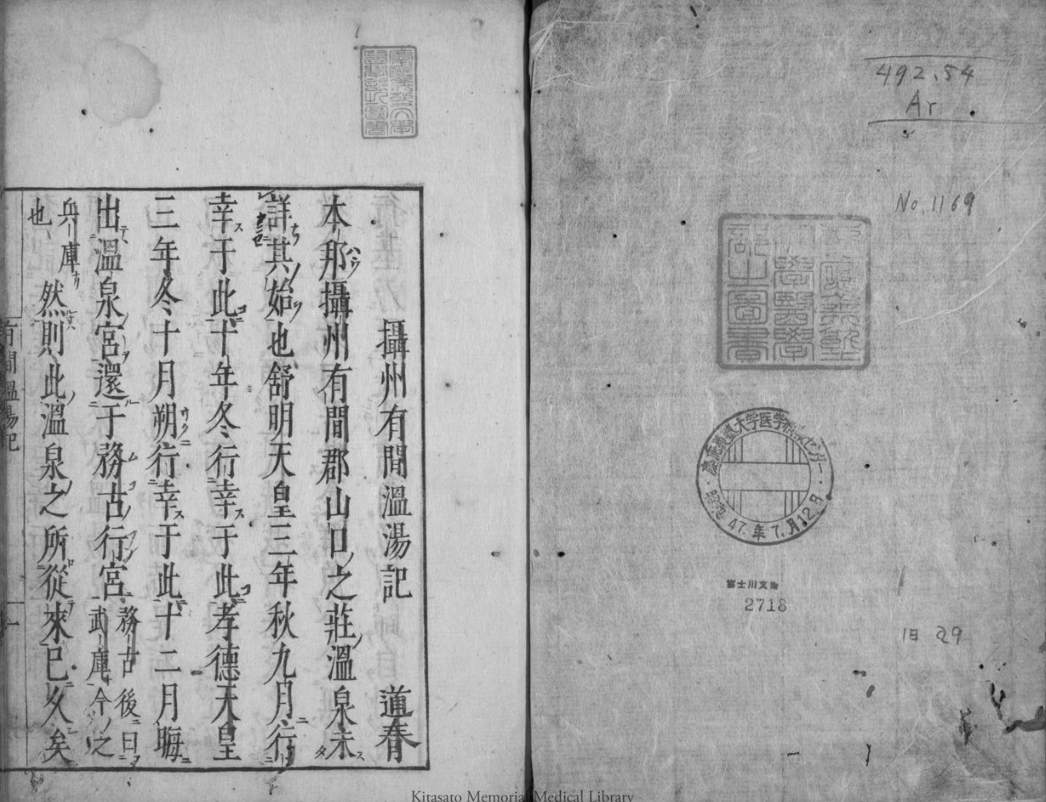 492.54
Ar
No. 1169
慶應義塾
大學醫學
部富士川文庫
2718
47.年7.月12日
旧 29
攝州有間溫湯記 道春
本那攝州有間郡山口之莊溫泉未
詳其始也舒明天皇三年秋九月行
幸于此十年冬行幸于此孝德天皇
三年冬十月朔行幸于此十二月晦
出溫泉宮還于務古行宮務古後曰武庫今之
兵庫也
然則此溫泉之所從來已久矣
有間溫湯記
一
Kitasato Memorial Medical Library